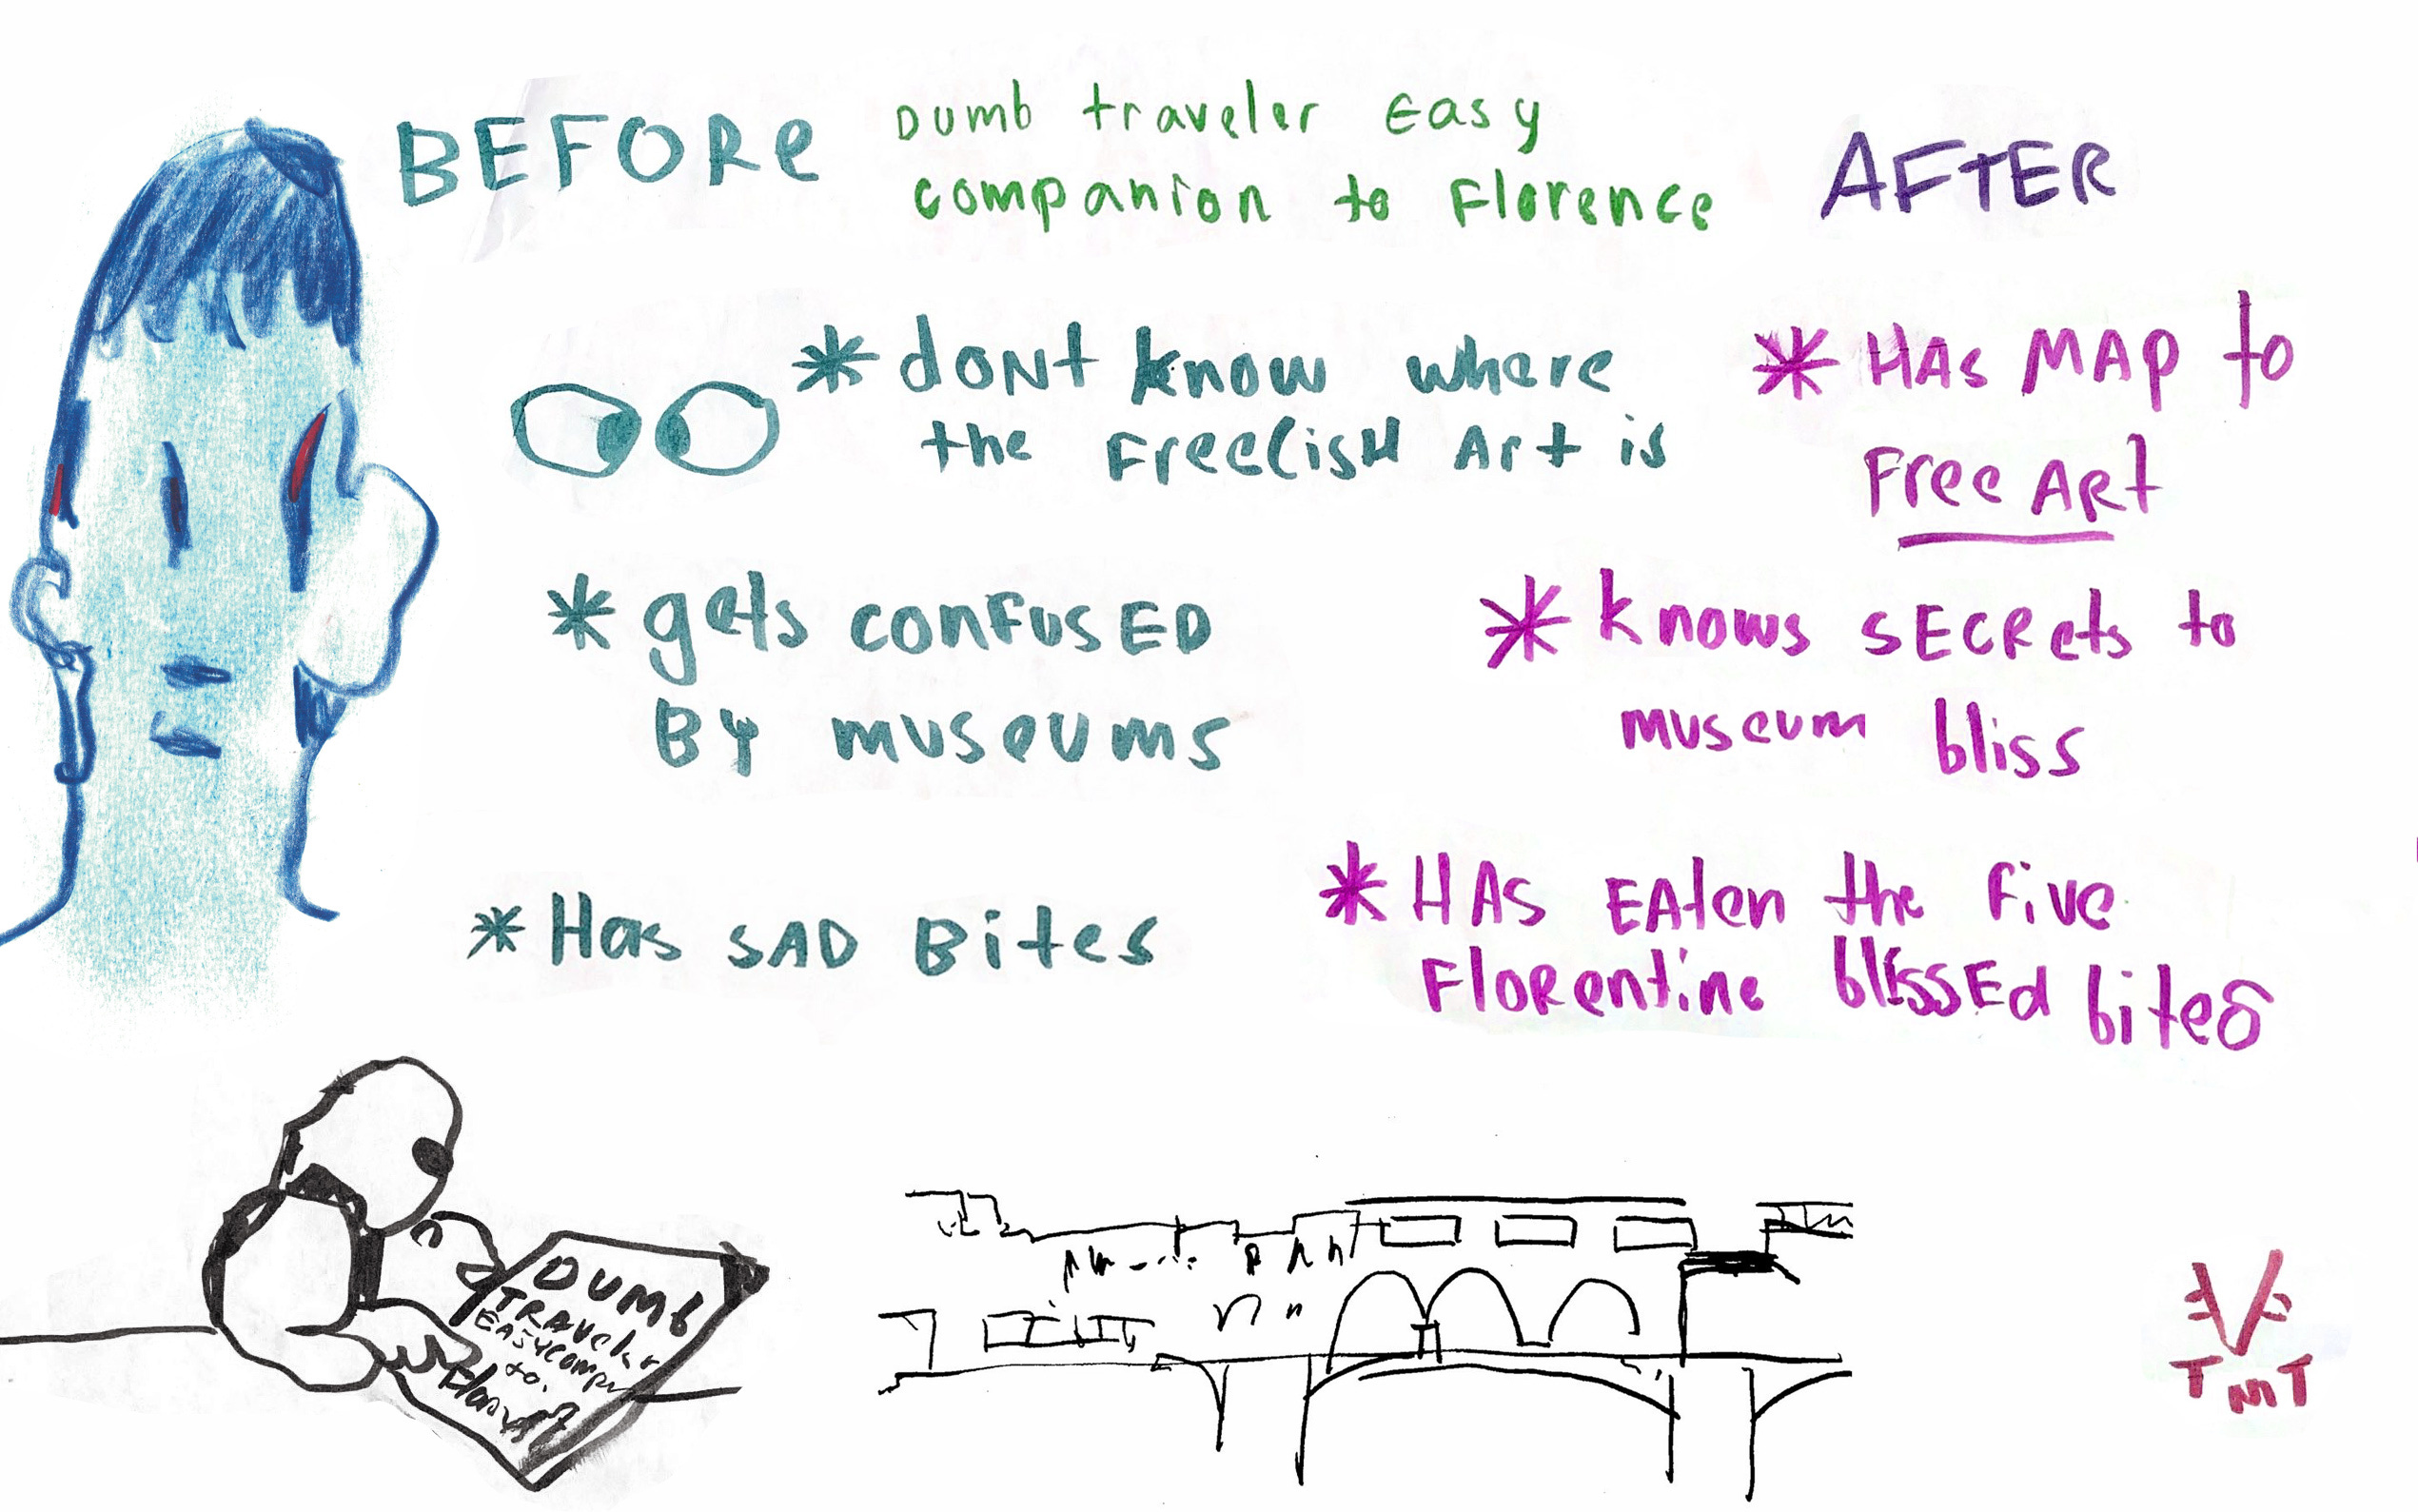 BEFORe
Dumb traveler Easy
companion to Florence
AFTER
* dont know where
the Freelish Art is
* gets confused
By museums
* Has SAD Bites
* HAs MAp to
Free ARt
* knows sECRets to
museum bliss
* HAs EAten the Five
FloRentine blissEd bites
DUMb
TRAveler
EAsy comp
to
TMT